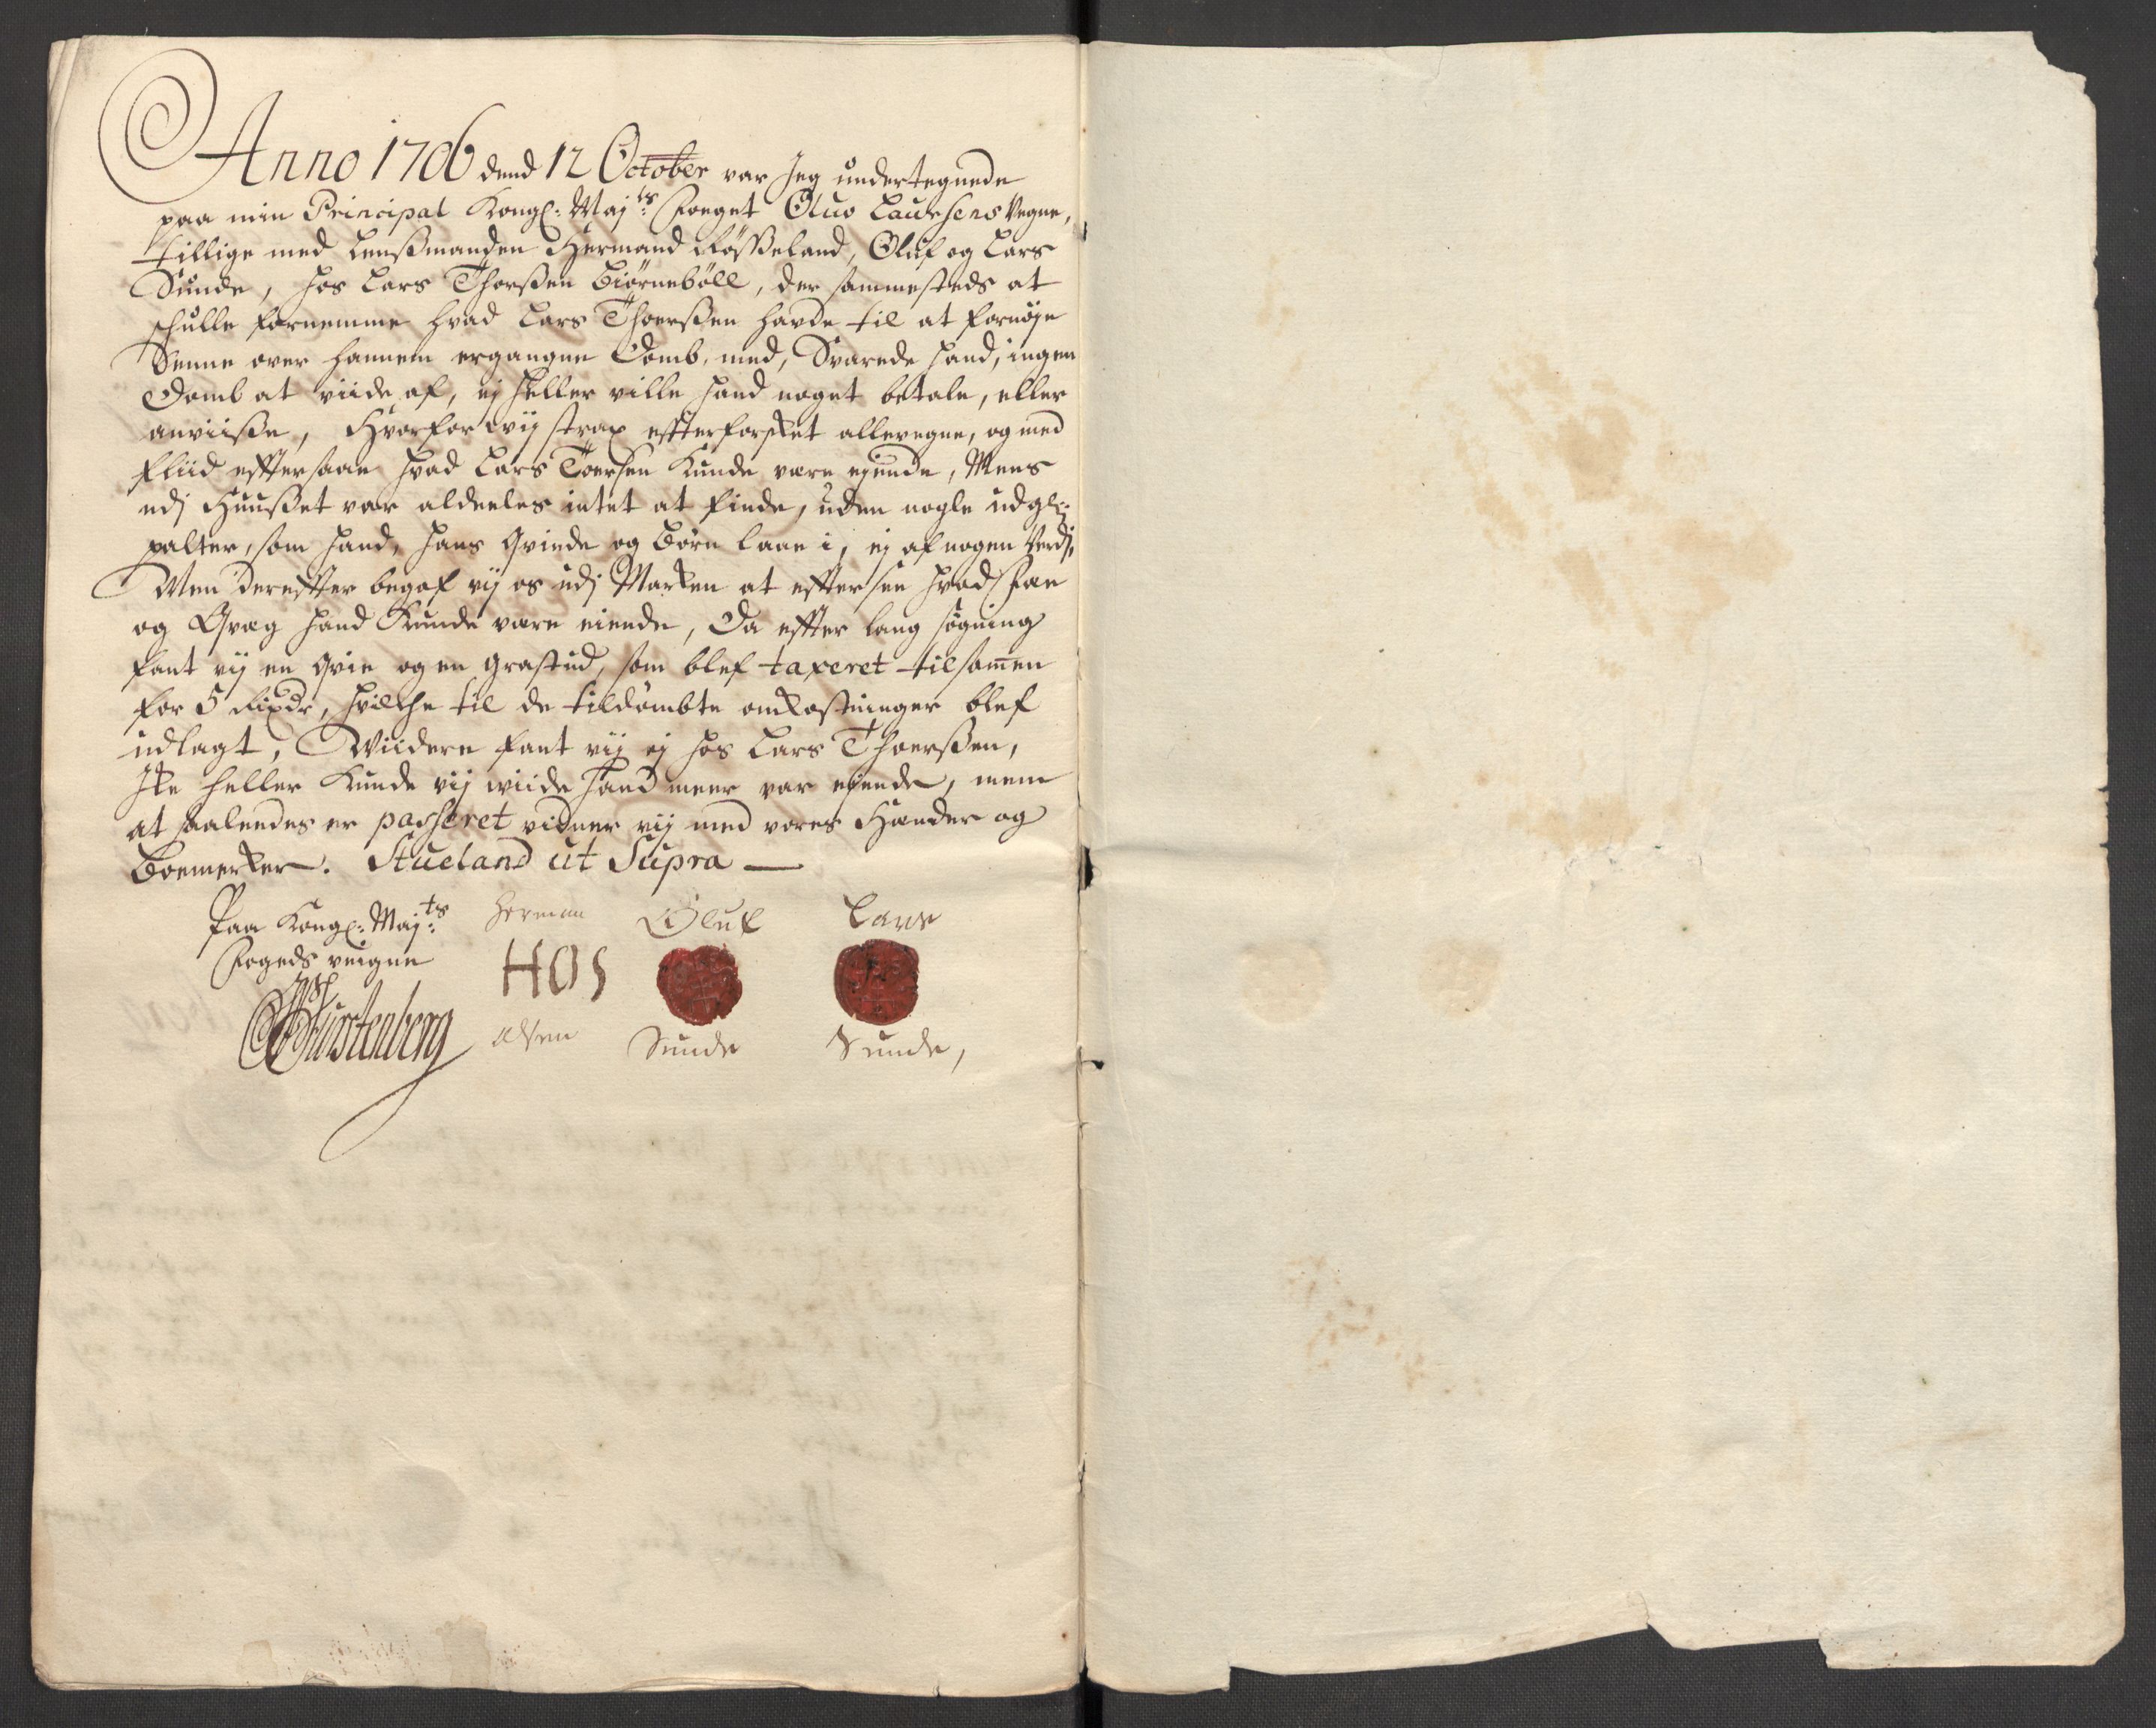 Anno 1706 dend 12 October var Jeg undertegnede
paa min Principal Kongl: Maj:ts Foeget Oluo Laursens Vegne,
tillige med Lenssmanden Hermand Røsseland, Oluf og Lars
Sunde, hos Lars Thorssen Biørnebøll, der sammesteds at
schulle fornemme hvad Lars Thoerssen havde til at fornøje
Denne over hannem ergangne Domb, med, Svarede hand, ingen
Domb at viide af, ej heller ville hand noget betale, eller
anviisse, Hvorfor vij strax effterforsket allevegne, og med
Fliid efftersaae hvad Lars Toersen Kunde være ejende, Mens
udj Huusset var aldeeles intet at finde, uden nogle
palter, som hand, hans Qvinde og Børn laae i, ej af nogen Verdj,
Men dereffter begaf vij os udj Marken at efftersee hvad Fæe
og Qvæg hand Kunde være eiende, Da effter lang søgning
fant vij en Qvie og en Grastud, som blef taxeret tilsamen
for 5 Rixdr, hvilche til de tildømbte omkostninger blef
udlagt, Wiidere fant vij ej hos Lars Thoerssen,
Ike heller Kunde vij viide hand meer var ejende, mens
at saaleedes er passeret vidner vij med vores Hænder og
Boemerker. Stueland ut Supra —
Paa Kongl: Maj:ts Herman Oluf Lars
Fogeds veigne HOS
Fürstenberg olsen Sunde Sunde,